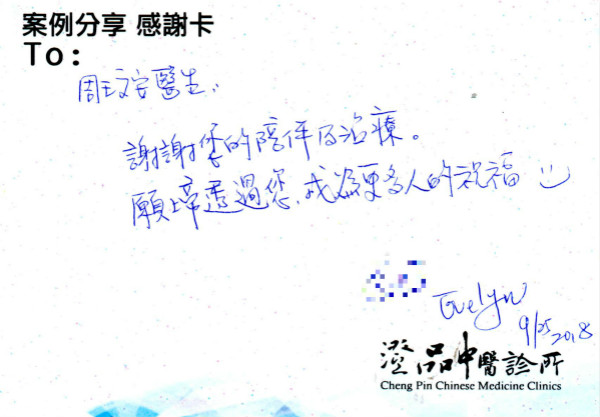 案例分享 感謝卡
To:
周玟安醫生，
謝謝您的陪伴及治療。
願上帝透過您，成為更多人的祝福
Evelyn
9/25 2018
澄品中醫診所
Cheng Pin Chinese Medicine Clinics